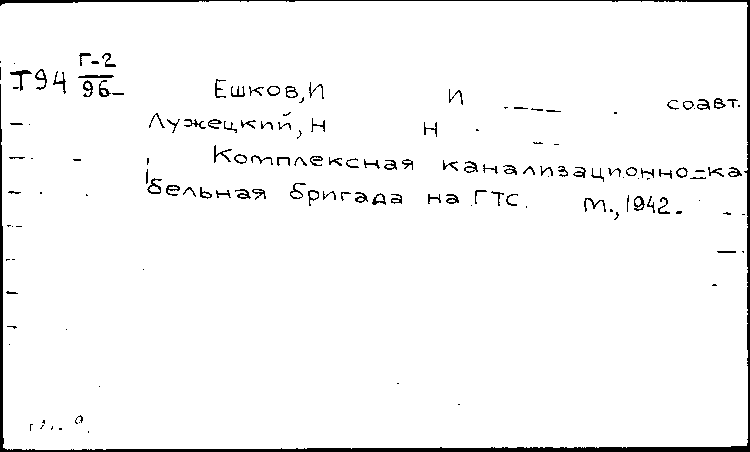 Т94 Г-2
96
Ешков, И И соавт.
Лужецкий, Н Н
Комплексная канализационно-ка-
бельная бригада на ГТС. М., 1942.